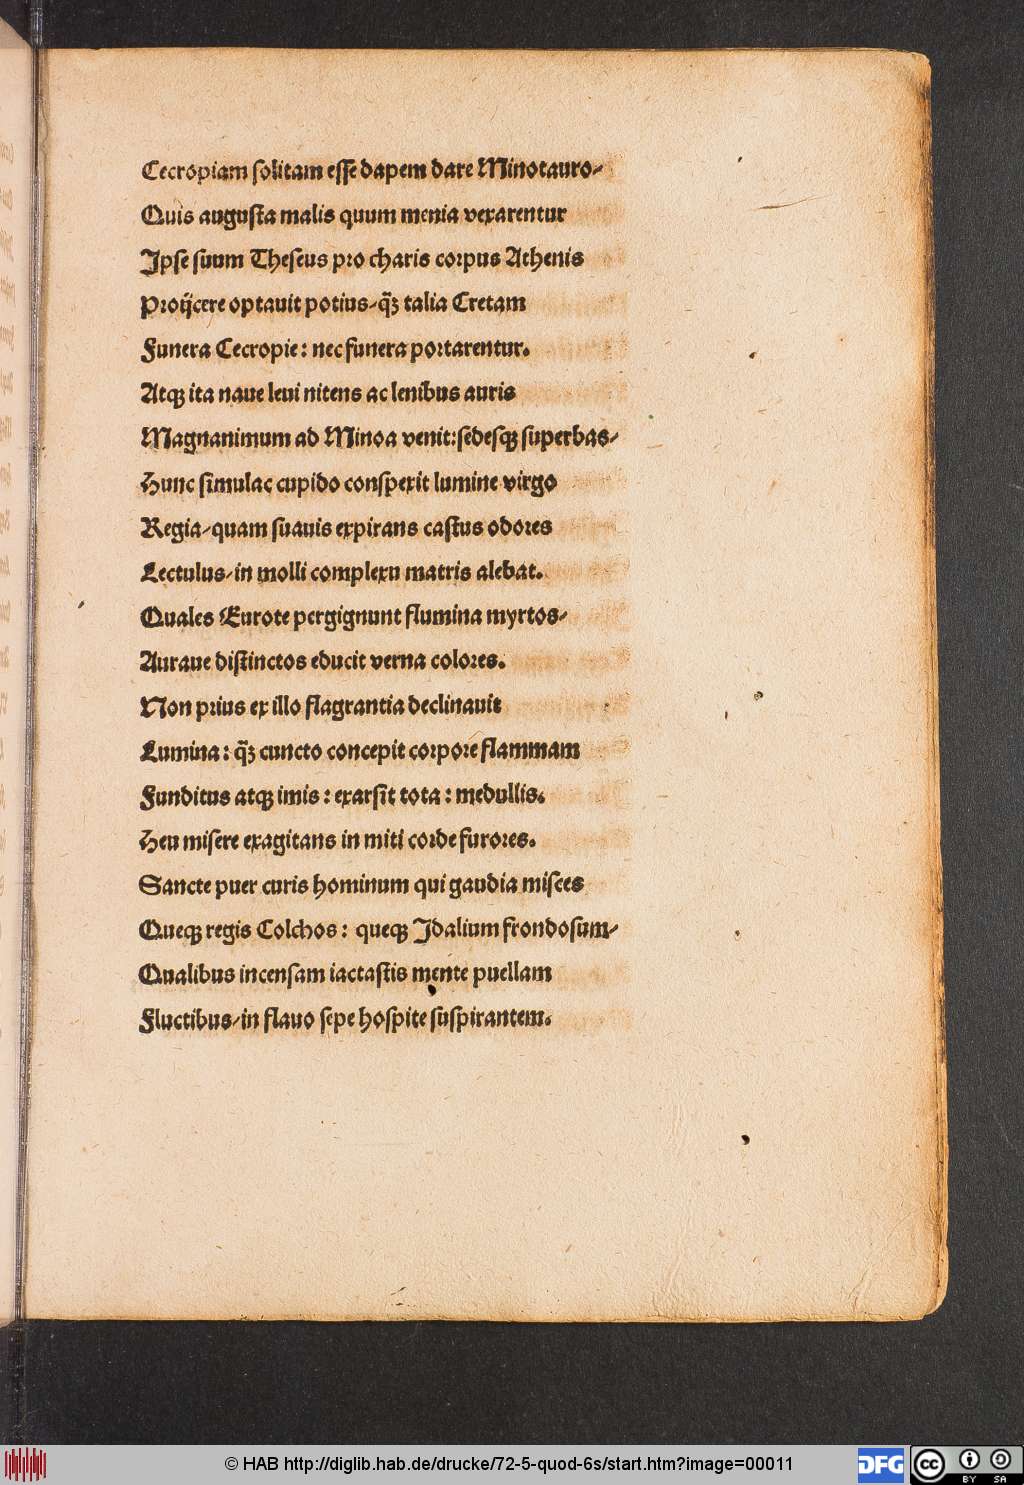 Cecropiam ſolitam eſſe dapem dare Minotauro⸗
Quis auguſta malis quum menia vexarentur
Jpſe ſuum Theſeus pro charis corpus Athenis
Proijcere optauit potius⸗q̃ꝫ talia Cretam
Funera Cecropie: nec funera portarentur.
Atqꝫ ita naue leui nitens ac lenibus auris
Magnanimum ad Minoa venit:ſedeſqꝫ superbas⸗
Hunc ſimulac cupido conſpexit lumine virgo
Regia⸗quam suauis expirans caſtus odores
Lectulus⸗in molli complexu matris alebat.
Quales Eurote pergignunt flumina myrtos⸗
Auraue diſtinctos educit verna colores.
Non prius ex illo flagrantia declinauit
Lumina: q̃ꝫ cuncto concepit corpore flammam
Funditus atqꝫ imis: exarſit tota: medullis.
Heu miſere exagitans in miti corde furores.
Sancte puer curis hominum qui gaudia miſces
Queqꝫ regis Colchos: queqꝫ Jdalium frondoſum⸗
Qualibus incenſam iactaſtis mente puellam
Fluctibus⸗in flauo ſepe hoſpite ſuſpirantem.
© HAB http://diglib.hab.de/drucke/72-5-quod-6s/start.htm?image=00011
DFG
cc
BY SA